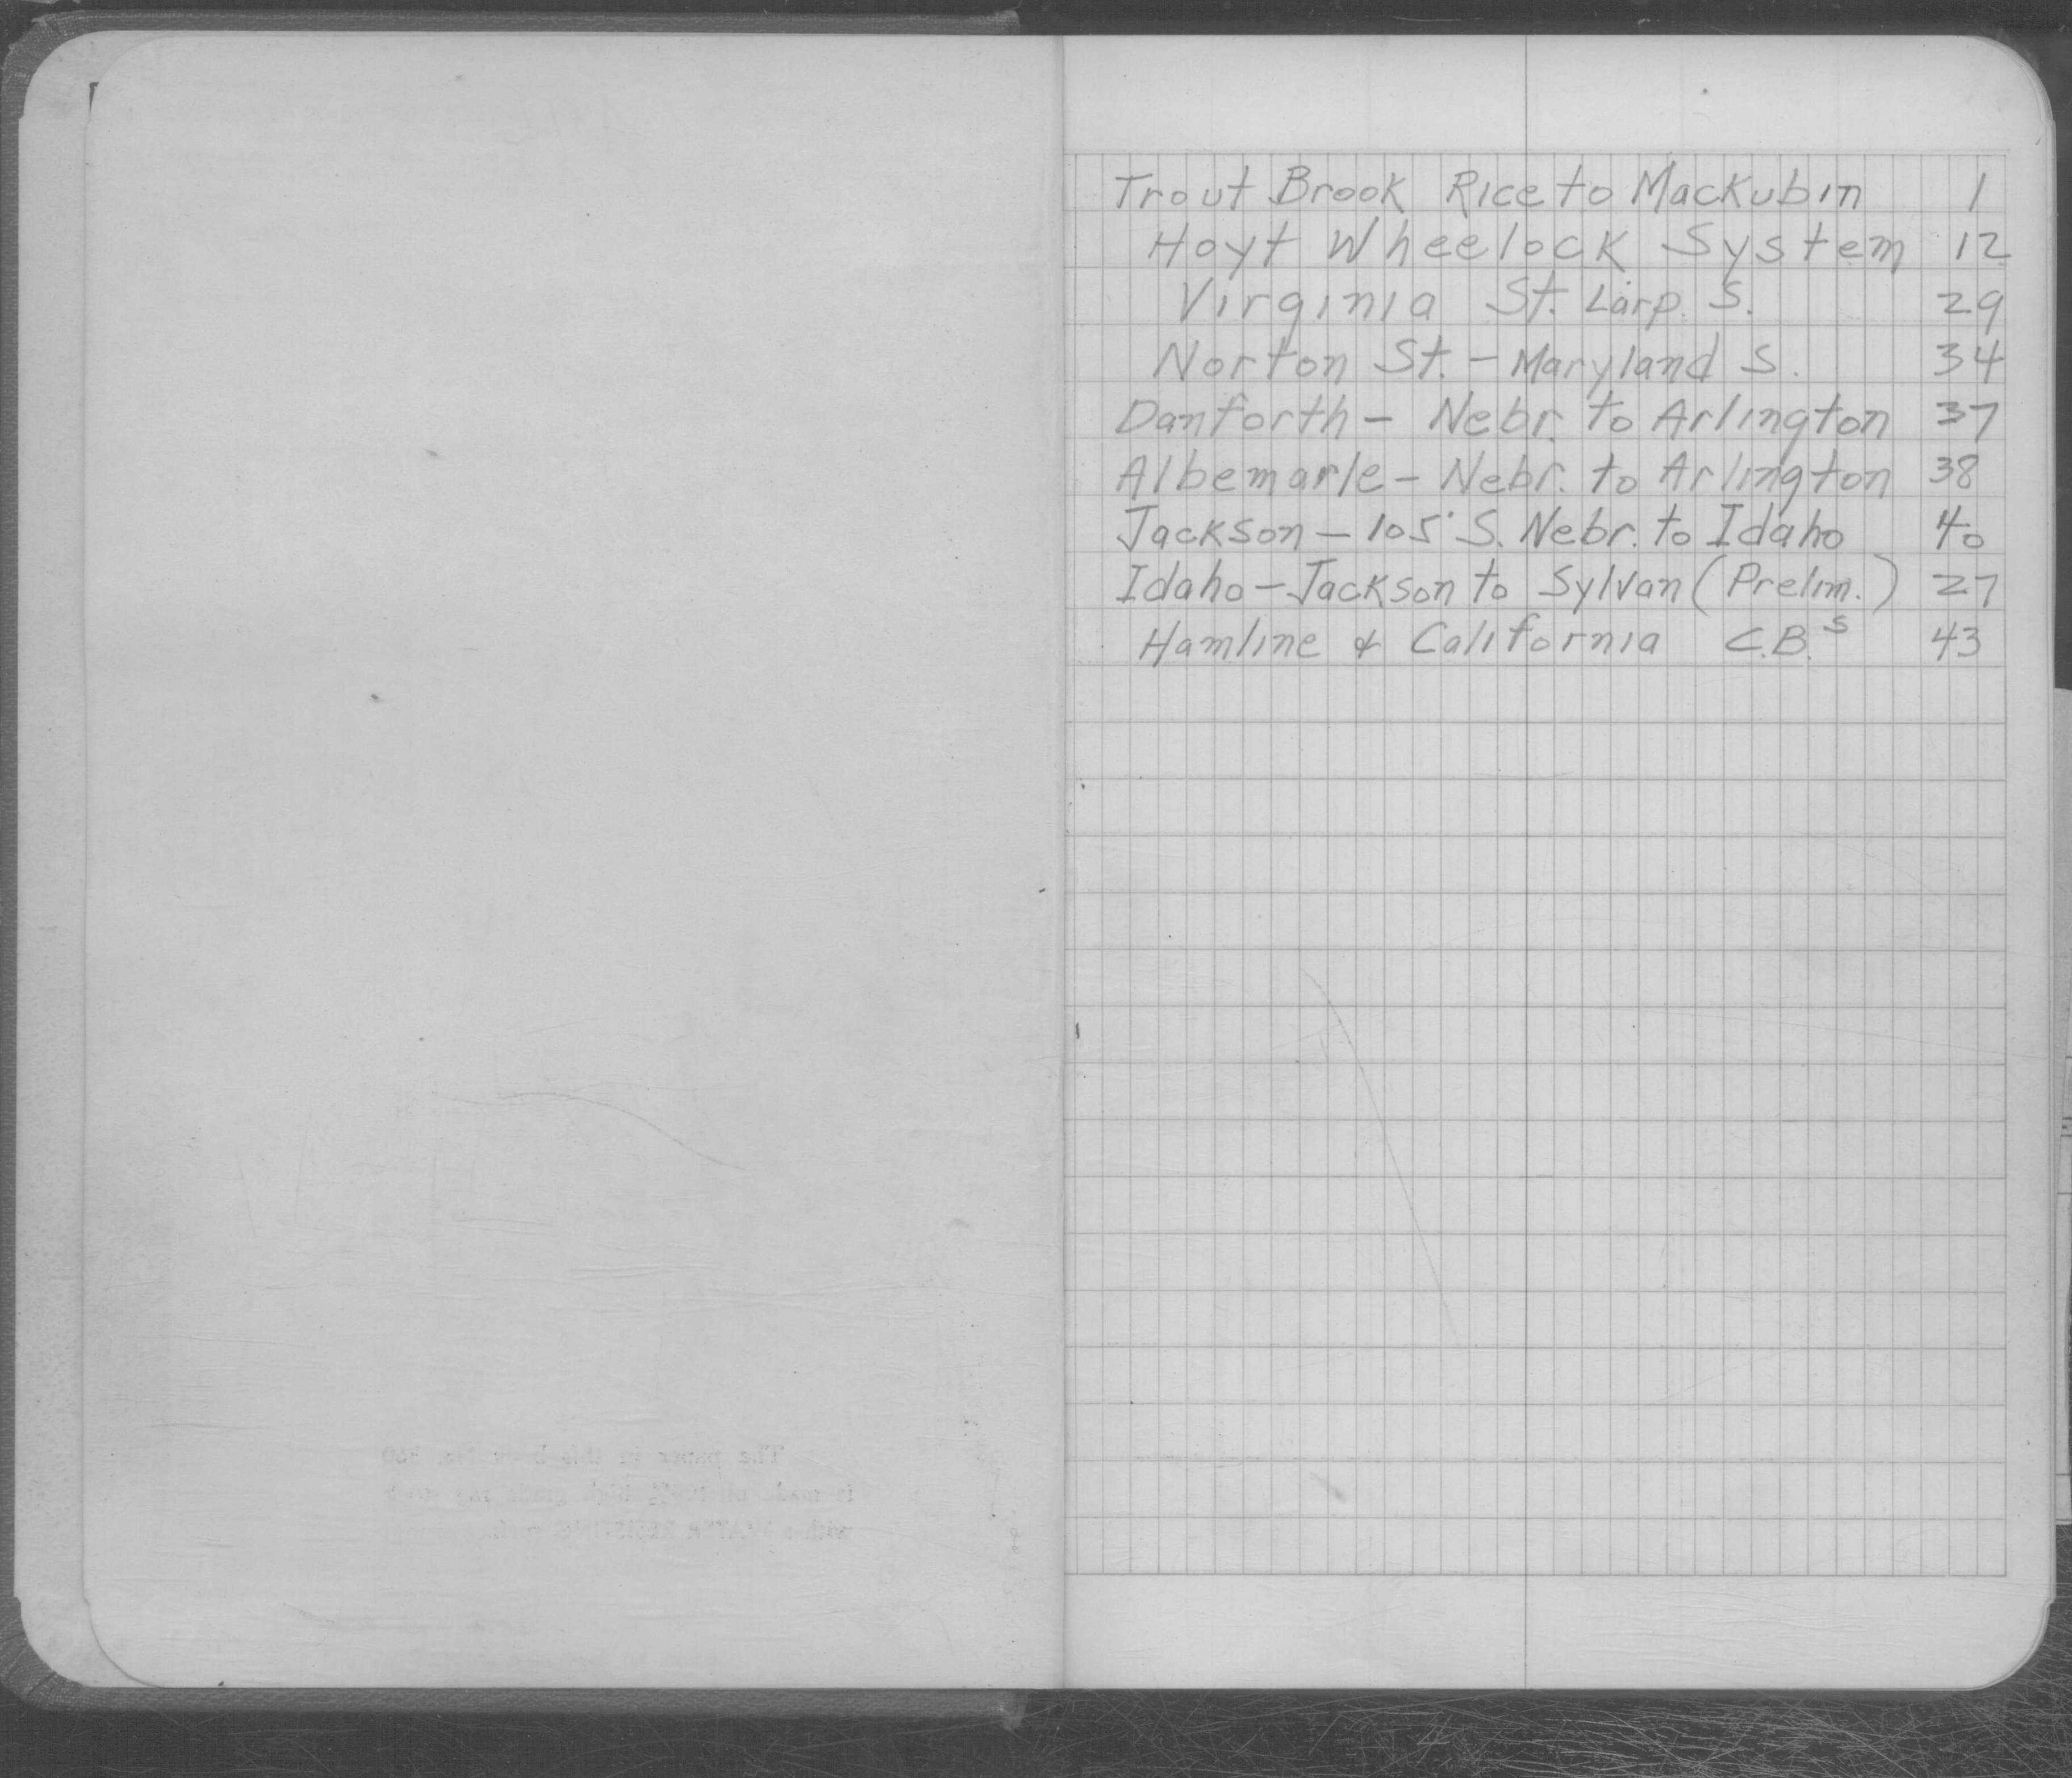 Trout Brook Rice to Mackubin 1
Hoyt Wheelock System 12
Virginia St. Larp. S. 29
Norton St. - Maryland S. 34
Danforth - Nebr. to Arlington 37
Albemarle - Nebr. to Arlington 38
Jackson - 105' S. Nebr. to Idaho 40
Idaho - Jackson to Sylvan (Prelim.) 27
Hamline & California C.B.s 43
The paper in this
is made of high grade rag
with a WATER RESISTING